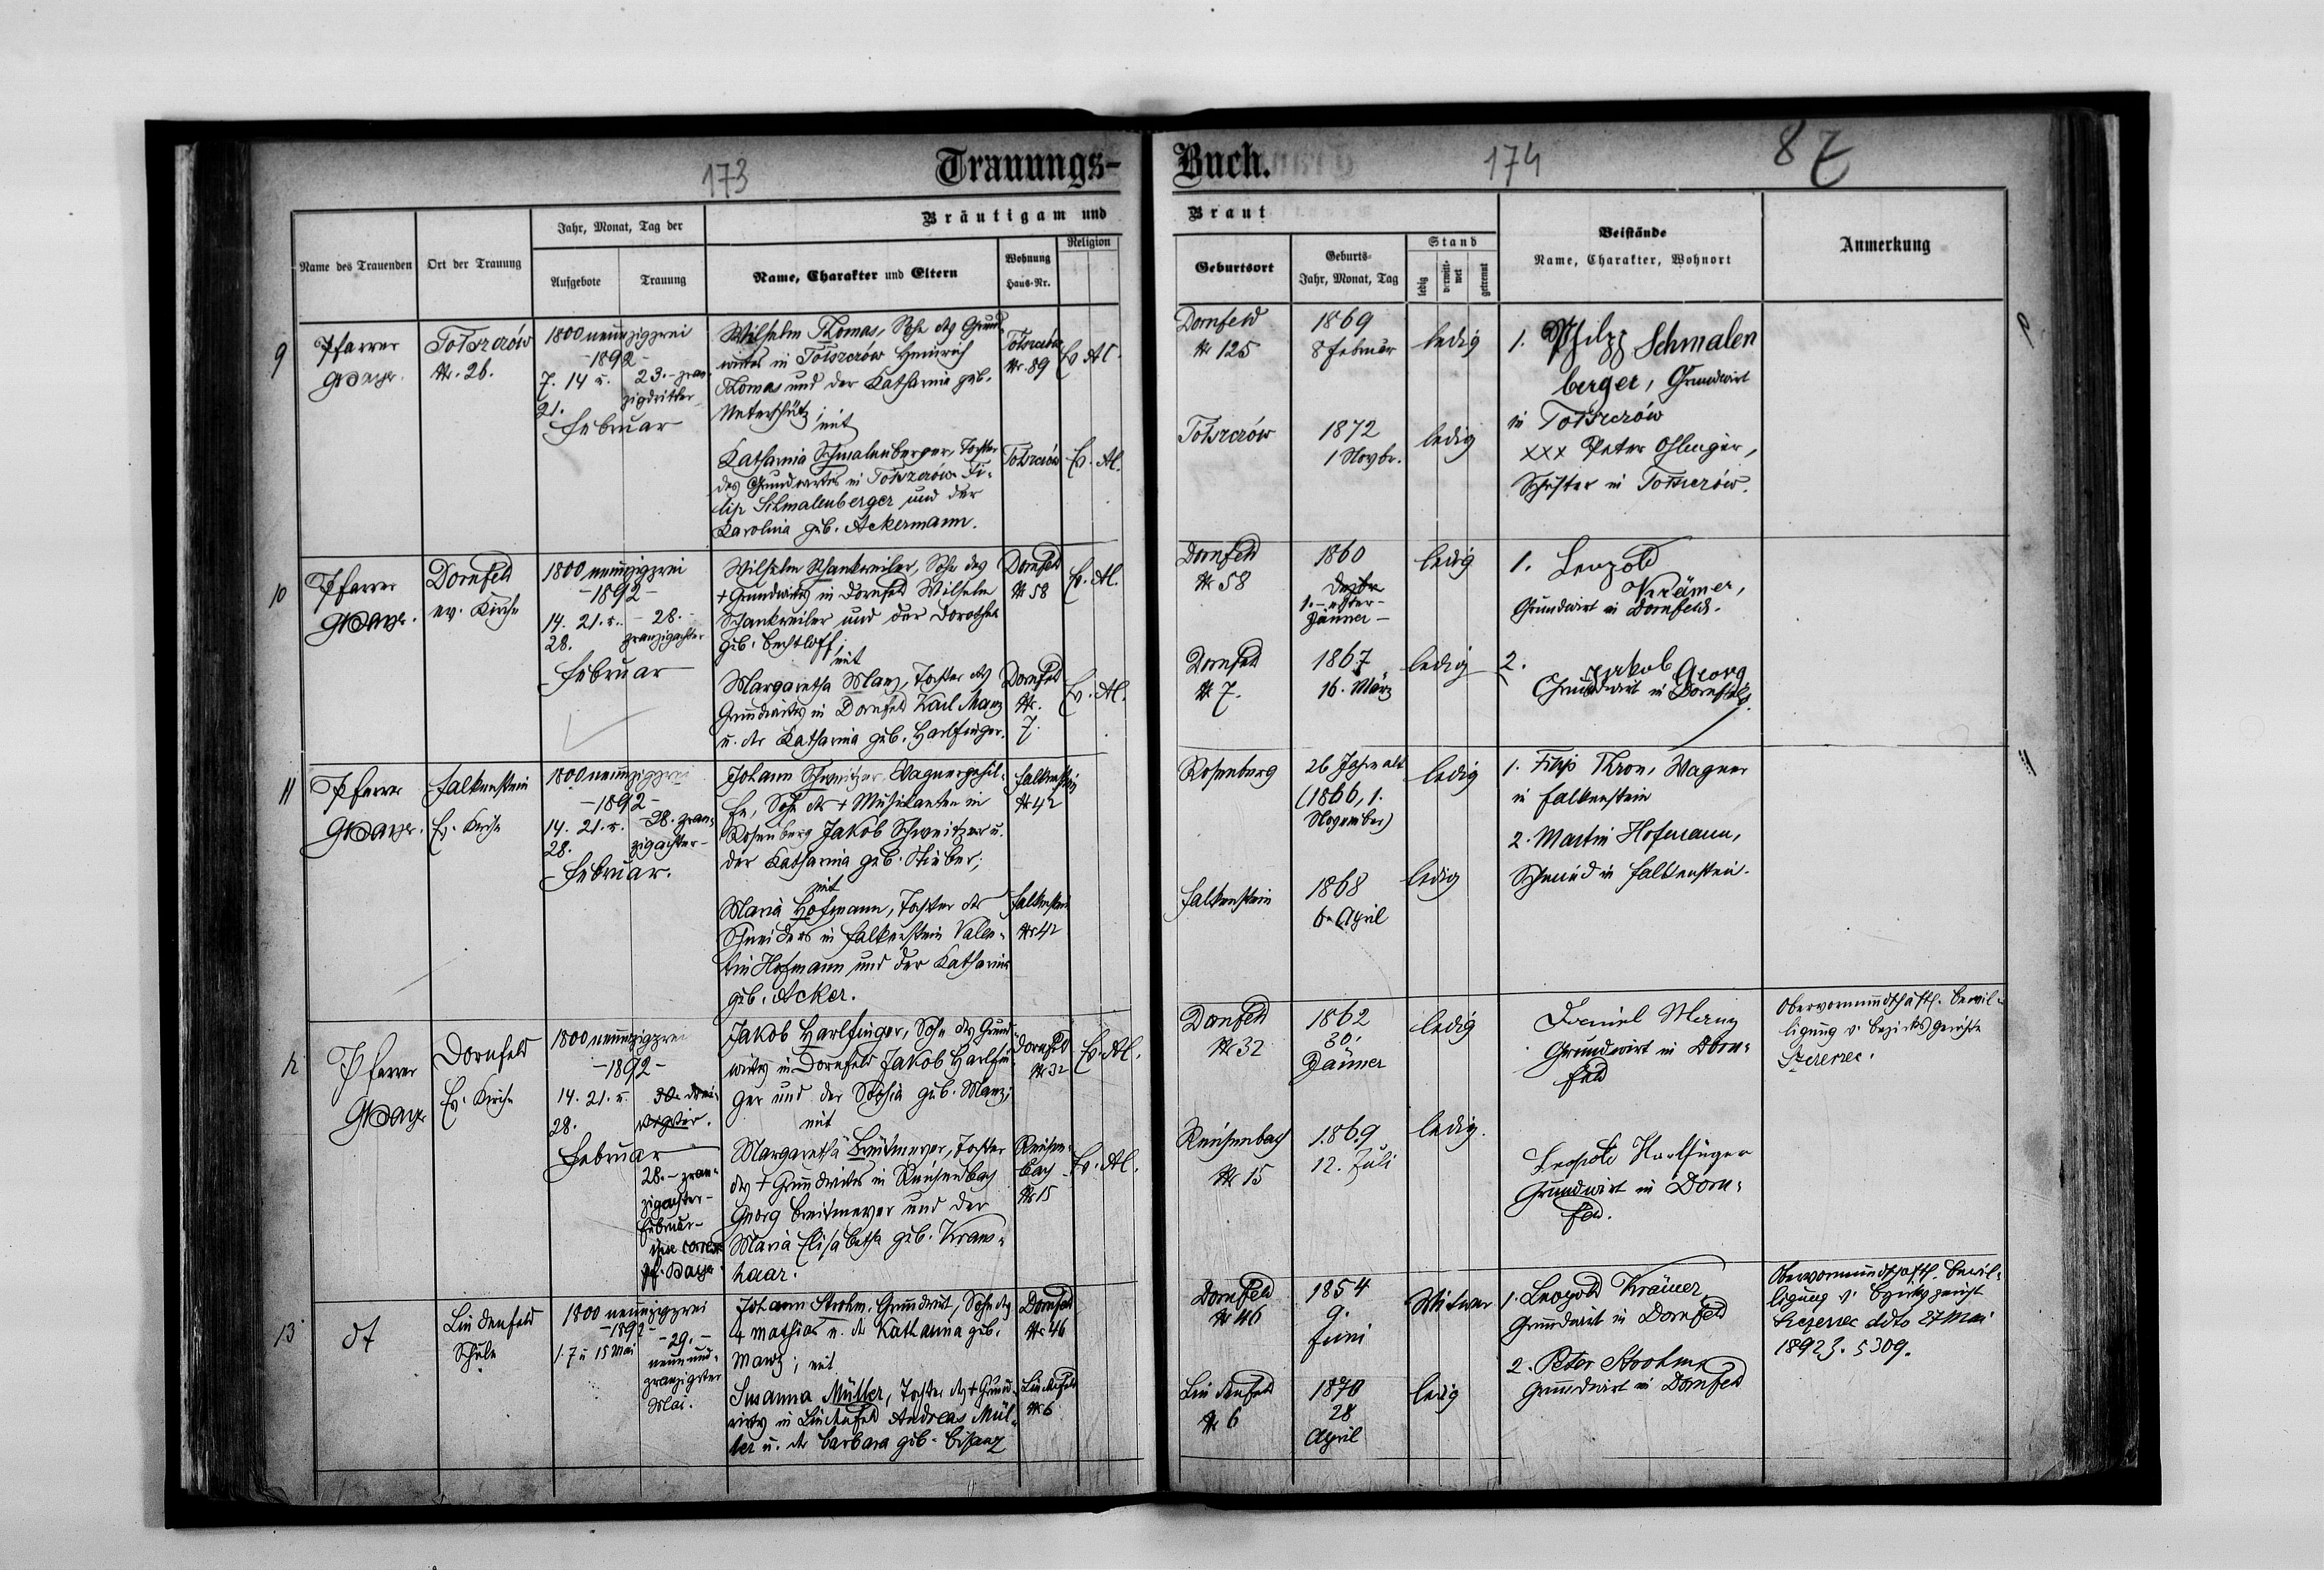 173
Trauungs-
Buch.
174
87
Name des Trauenden
Ort der Trauung
Jahr, Monat, Tag der
Aufgebote
Trauung
Bräutigam und
Name, Charakter und Eltern
Wohnung
Haus-Nr.
Religion
Braut
Geburtsort
Geburts-
Jahr, Monat, Tag
Stand
ledig
verwitt-
wet
getrennt
Beistände
Name, Charakter, Wohnort
Anmerkung
9
Pfarrer
Totszczów
Nr. 26.
1800 neunzigzwei
-1892-
7. 14 u.
21.
Februar
23.- zwan-
zigdritter
Wilhelm Thomas, Sohn des Grund-
wirtes in Totszczów Heinrich
Thomas und der Katharina geb.
Unterschütz
mit
Katharina Schmalenberger, Tochter
des Grundwirtes in Totszczów Fi-
lip Schmalenberger und der
Karolina geb. Ackermann.
Totszczów
Nr. 89
Ev. Al.
Totszczów
Ev. Al.
Dornfeld
Nr 125
1869
8 Februar
ledig
Totszczów
1872
1 Novbr.
ledig
1. Philipp Schmalen
berger, Grundwirt
in Totszczów
xxx Peter Ohlinger,
Schuster in Totszczów.
10
Pfarrer
Dornfeld
ev. Kirche
1800 neunzigzwei
-1892-
14. 21. u.
28.
Februar
- 28.-
zwanzigachter
Wilhelm Schankweiler, Sohn des
+ Grundwirtes in Dornfeld Wilhelm
Schankweiler und der Dorothea
geb. Bechtloff
mit
Margaretha Manz, Tochter des
Grundwirtes in Dornfeld Karl Manz
u. der Katharina geb. Harlfinger.
Dornfeld
Nr 58
Ev. Al.
Dornfeld
Nr.
7.
Ev. Al.
Dornfeld
Nr 58
1860
1.- erster-
Jänner-
ledig
Dornfeld
Nr 7.
1867
16. März
ledig
1. Leopold
Krämer,
Grundwirt in Dornfeld.
2.
Jakob Georg
Grundwirt in Dornfeld.
11
Pfarrer
Falkenstein
Ev. Kirche
1800 neunzigzwei
-1892-
14. 21. u.
28.
Februar.
-28. zwan-
zigachter-
Johann Schweitzer, Wagnergehil-
fe, Sohn des + Musikanten in
Rosenberg Jakob Schweitzer u.
der Katharina geb. Stieber;
mit
Maria Hofmann, Tochter des
Schneiders in Falkenstein Valen-
tin Hofmann und der Katharina
geb. Acker.
Falkenstein
Nr 42
Falkenstein
Nr 42
Rosenberg
26 Jahre alt
(1866, 1.
November)
ledig
Falkenstein
1868
6. April
ledig
1. Filip Kron, Wagner
in Falkenstein
2. Martin Hofmann,
Schmied in Falkenstein.
11
12
Pfarrer
Dornfeld
Ev. Kirche
1800 neunzigzwei
-1892-
14. 21. u.
28.
Februar
30. drei-
28.- zwan-
zigachter-
Februar-
Pf. Bayer.
Jakob Harlfinger, Sohn des Grund-
wirtes in Dornfeld Jakob Harlfin-
ger und der Sophia geb. Manz;
mit
Margaretha Breitmeyer, Tochter
des + Grundwirtes in Reichenbach
Georg Breitmeyer und der
Maria Elisabetha geb. Kraus-
haar.
Dornfeld
Nr 32
Ev. Al.
Reichen-
bach
Nr 15
Ev. Al.
Dornfeld
Nr 32
1862
30.
Jänner
ledig
Reichenbach
Nr 15
1869
12. Juli
ledig.
Daniel Manz
Grundwirt in Dorn-
feld
Leopold Harlfinger
Grundwirt in Dorn-
feld.
Obervormundschaftl. Bewil-
ligung v. Bezirksgerichte
Szczerzec.
13
dt
Lindenfeld
Schule
1800 neunzigzwei
-1892-
1. 7 u 15 Mai
-29.-
neunund-
zwanzigster
Mai.
Johann Strohm, Grundwirt, Sohn des
+ Mathias u. der Katharina geb.
Manz; mit
Susanna Müller, Tochter des + Grund-
wirtes in Lindenfeld Andreas Mül-
ler u. der Barbara geb. Bisanz
Dornfeld
Nr 46
Lindenfeld
Nr 6
Dornfeld
Nr 46
1854
9.
Juni
Witwer
Lindenfeld
Nr 6
1870
28
April
ledig
1. Leopold Krämer,
Grundwirt in Dornfeld
2. Peter Strohm
Grundwirt in Dornfeld
Obervormundschaftl. Bewil-
ligung v. Bezirksgericht
Szczerzec ddto 27 Mai
1892 Z. 5309.